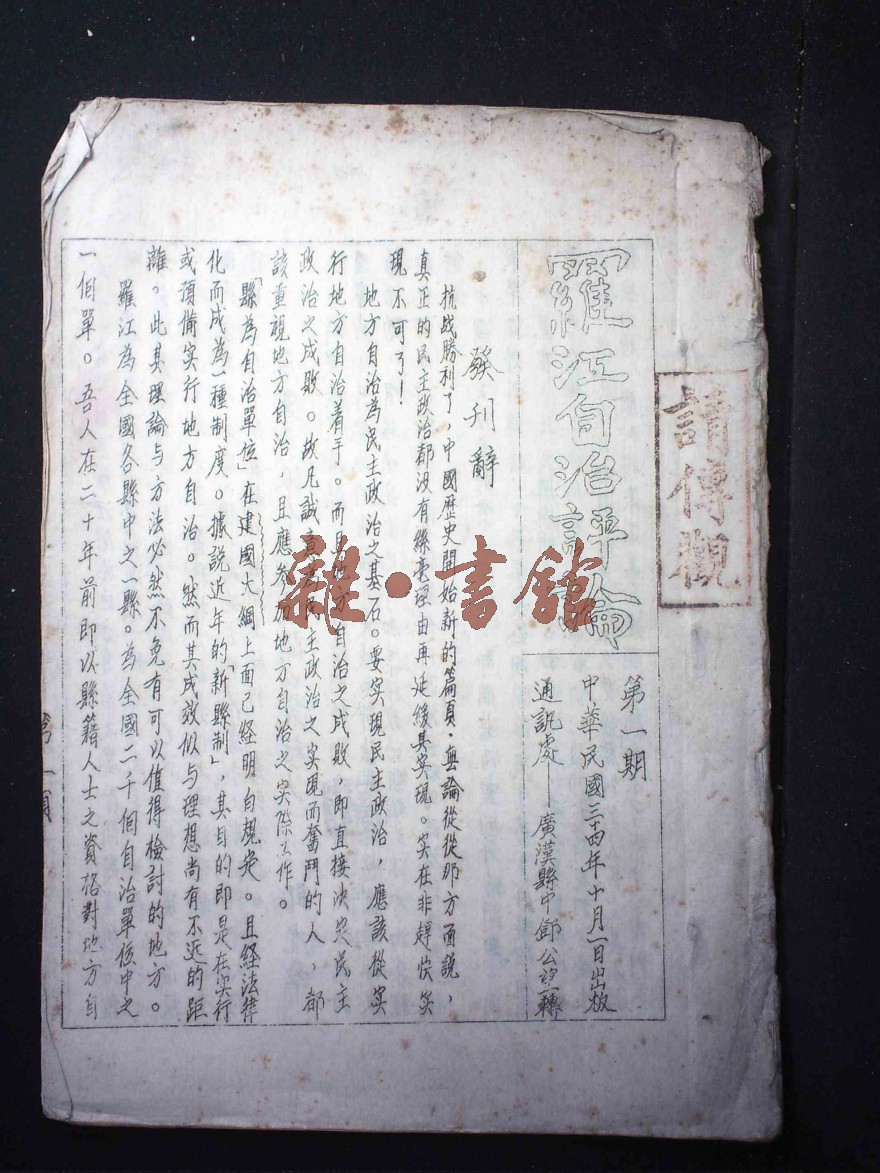 請傳觀
羅江自治評論
第一期
中華民國三十四年十月一日出版
通訊處——廣漢縣中鄧公 轉
發刊辭
抗战勝利了，中國歷史開始新的篇頁，無論從從那方面説，
真正的民主政治都没有絲毫理由再延緩其实現。实在非趕快实
現不可了！
地方自治為民主政治之基石。要实現民主政治，應該從实
行地方自治着手。而且地方自治之成敗，即直接决定民主
政治之成敗。故凡誠 民主政治之实現而奮鬥的人，都
該重視地方自治，且應參加地方自治之实際工作。
「縣為自治單位」在建國大綱上面已経明白規定。且経法律
化而成為一種制度。據説近年的「新縣制」，其目的即是在实行
或預備实行地方自治。然而其成效似与理想尚有不近的距
離。此其理論与方法必然不免有可以值得檢討的地方。
羅江為全國各縣中之一縣。為全國二千個自治單位中之
一個單。吾人在二十年前即以縣籍人士之資格對地方自
第一頁
雜·書館